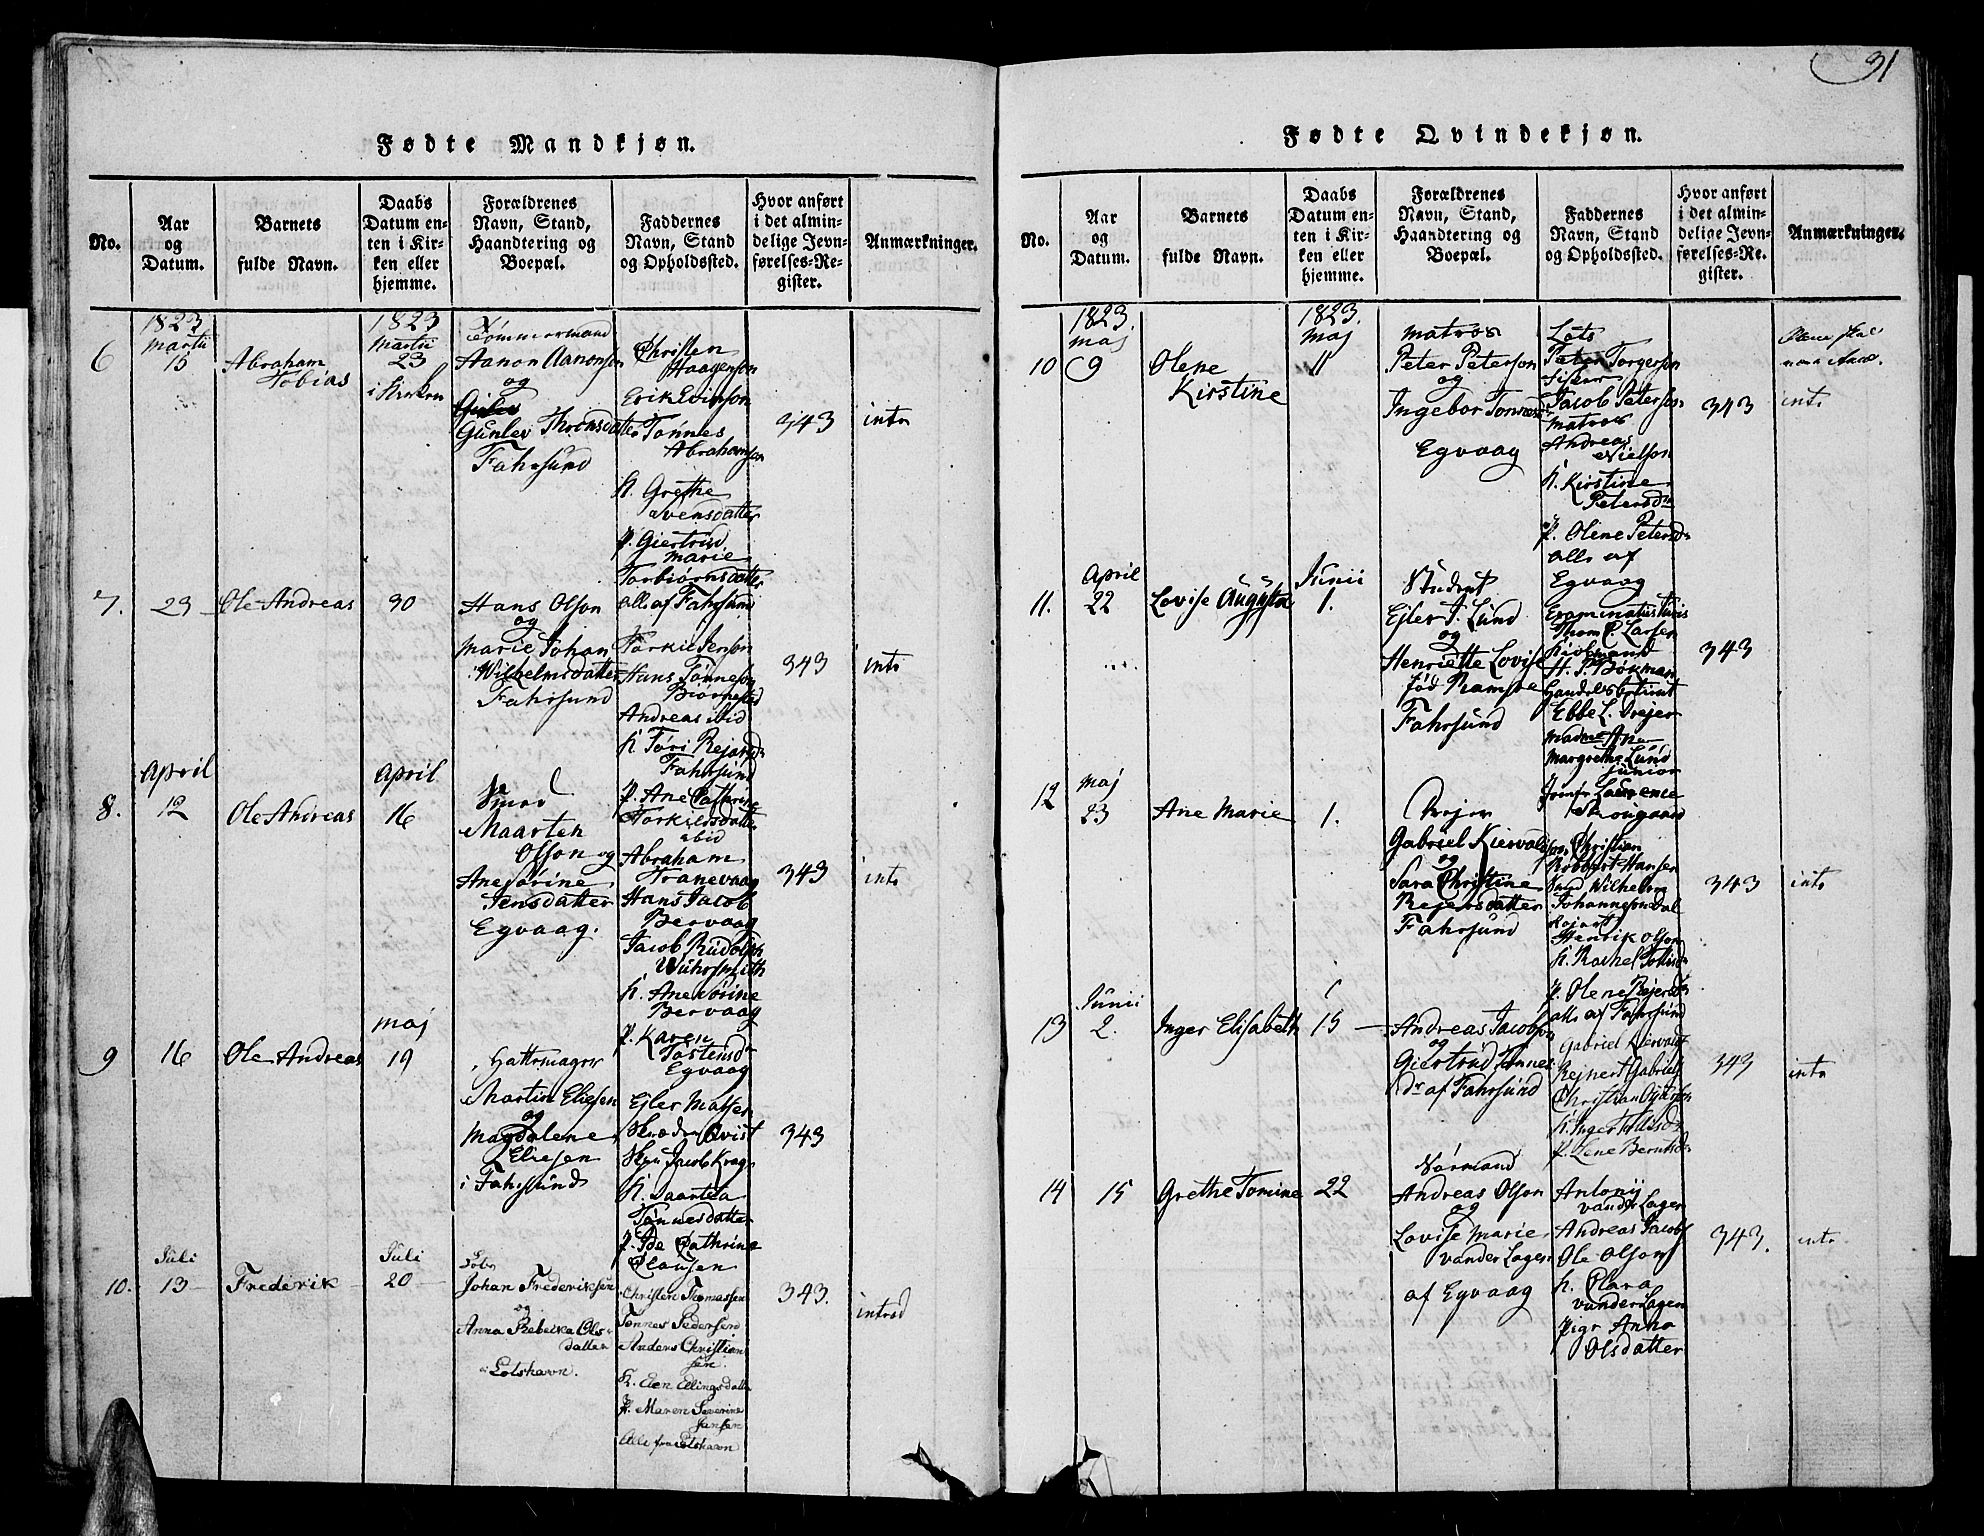 31
Fødte Mandkjøn.
No.
Aar
og
Datum.
Barnets
fulde Navn.
Daabs
Datum en-
ten i Kir-
ken eller
hjemme.
Forældrenes
Navn, Stand,
Haandtering og
Boepæl.
Faddernes
Navn, Stand
og Opholdssted.
Hvor anført
i det almin-
delige Jevn-
førelses-Re-
gister.
Anmærkninger.
6
1823
Martii
15
Abraham
Tobias
1823
Martii
23
i Kirken
Tømmermand
Aanon Aanonsøn
og
Gunlev Thronsdatter
Fahrsund
Christen
Haagenson
Erik Evinson
Tønnes
Abrahamson
K. Grethe
Svensdatter
P. Giertrud
Marie
Torbiørnsdatter
alle af Fahrsund
343
intr
7.
23
Ole Andreas
30
Hans Olson
og
Marie Johan
Wilhelmsdatter
Fahrsund
Torkil Jenson
Hans Tønneson
Biørnestad
Andreas ibid
K. Tøri Rejersd
Fahrsund
P. Ane Cathrine
Torkelsdatter
ibid
343
intr
8.
April
12
Ole Andreas
April
16
Smed
Maarten
Olson og
Ane Sørine
Jensdatter
Egvaag.
Abraham
Tranevaag
Hans Jacob
Bervaag
Jacob Rudolph
Wuhrsmith
K. Ane Sørine
Bervaag
P. Karen
Tostensd
Egvaag
343
intr
9
16
Ole Andreas
Maj
19
Hattemager
Martin Eliesen
og
Magdalene
Eliesen
i Fahrsund
Ejler Matsen
Skræder Qvist
Jacob Krag
K. Saartea
Tønnesdatter
P. Ide Cathrine
Clausen
343
10.
Juli
13
Frederik
Juli
20
Lods
Johan Frederiksen
og
Anna Rebekka Ols-
datter
Lotshavn.
Christen Thomassen
Tønnes Pedersen
Anders Christian
sen.
K. Elen Ellingsdatter
P. Maren Severine
Jansen
Alle fra Lotshavn
343.
introd
Fødte Qvindekjøn.
No.
Aar
og
Datum.
Barnets
fulde Navn.
Daabs
Datum en-
ten i Kir-
ken eller
hjemme.
Forældrenes
Navn, Stand,
Haandtering og
Boepæl.
Faddernes
Navn, Stand
og Opholdssted.
Hvor anført
i det almin-
delige Jevn-
førelses-Re-
gister.
Anmærkninger.
10
1823.
Maj
9
Olene
Kirstine
1823.
Maj
11
Matros
Peter Peterson
og
Ingebor Tønnesd
Egvaag
Lots
Torgerson
Jacob Peterson
Matros
Andreas
Nielson
K. Kirstine
Petersdr
P. Olene Petersd
alle af
Egvaag
343
intr
11.
April
22
Lovise Augusta
Junii
1.
Student
Ejler J. Lund
og
Henriette Lovise
fød Ramsøe
Fahrsund
Examinatus Juris
Thom P. Larsen
Kiøbmand
H. P. Bøkman
Handelsbetient
Ebbe L. Drejer
Madme Ane
Margrethe Lund
Junior
Jomfr Laurence
343
12
Maj
23
Ane Marie
1.
Drejer
Gabriel Kiervald
og
Sara Christine
Rejersdatter
Fahrsund
Christian
Robbert Hansen
Smed Wilhelm
Johanneson Dal
Henrik Olson
K. Rachel Tollisd
P. Olene Rejersdr
alle af Fahrsund
343
intr
13
Junii
2.
Inger Elisabeth
15
Andreas Jacobsen
og
Giertrud Tønnes
dr af Fahrsund
Gabriel Kiervald
Rejnert Gabriels
Christian
K. Inger
P. Lene Berntsd
343
intr
14
15
Grethe Tomine
22
Sømand
Andreas Olson
og
Lovise Marie
vander Lagen
af Egvaag
Antony
vander Lagen
Andreas Jacobs
Ole Olson
K. Clara
vanderLagen
Pige Anna
Olsdatter
343.
intr